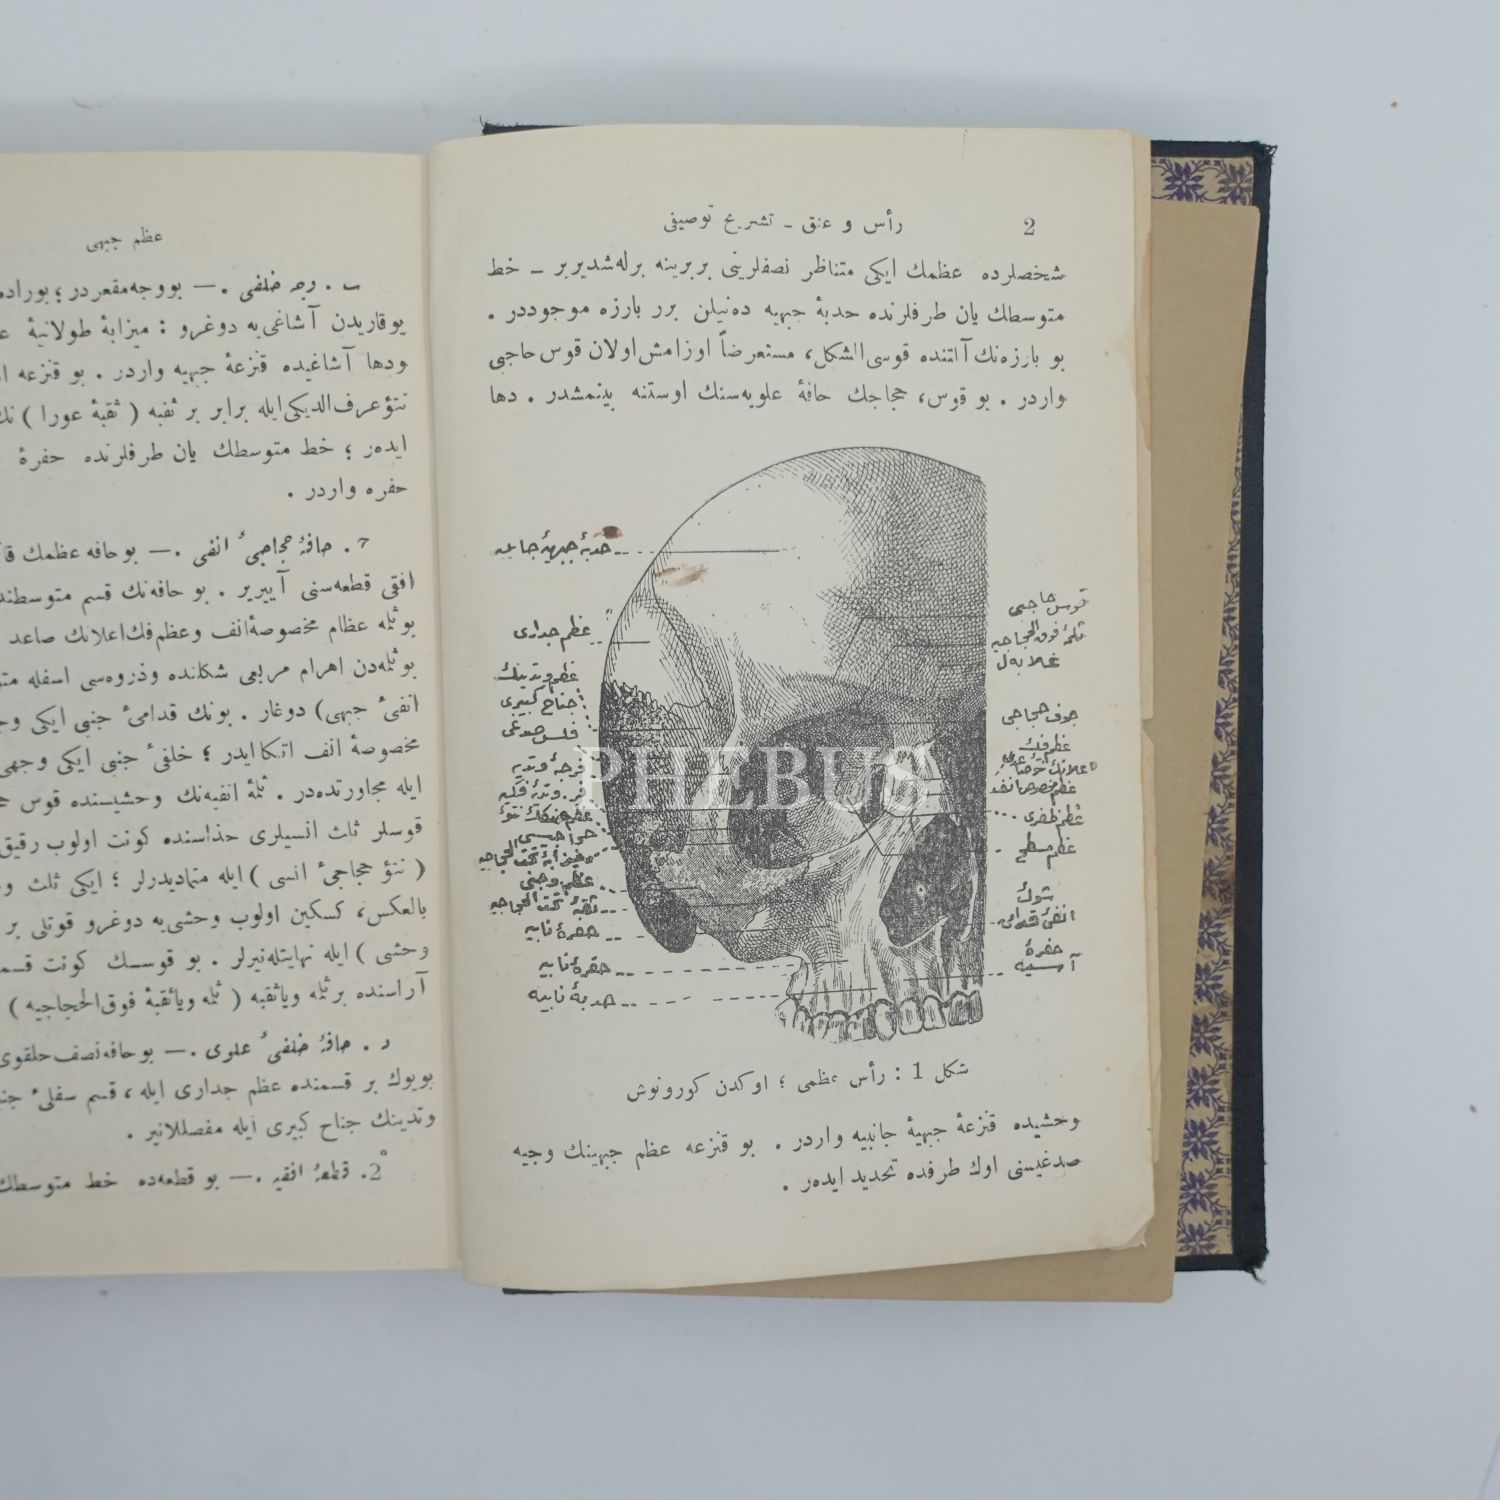 2
رأس و عنق ـ تشریح توصیفی
شخصلرده عظمك ایكی متناظر نصفلرینی بربرینه برله‌شدیریر ـ خط
متوسطك یان طرفلرنده حدبهٔ جبهیه ده‌نیلن برر بارزه موجوددر .
بو بارزه‌نك آلتنده قوسی‌الشكل، مستعرضاً اوزامش اولان قوس حاجبی
واردر . بو قوس، حجاجك حافهٔ علویه‌سنك اوستنه بینمشدر . دها
حدبهٔ جبهیهٔ جانبیه
عظم جداری
عظم وتدینك
جناح كبیری
فلس صدغی
فرجهٔ وتدیه
عظم وجنی
ثقبهٔ تحت الحجاجیه
حفرهٔ نابیه
حفرهٔ نابیه
حدبهٔ نابیه
قوس حاجبی
ثلمهٔ فوق الحجاجیه
غلابه‌ل
جوف حجاجی
عظم فك
عظم ظفری
عظم مسطح
شوك
انفیٔ قدامی
حفرهٔ
آسیه
PHEBUS
شكل 1 : رأس عظمی ؛ اوكدن كورونوش
وحشیده قنزعهٔ جبهیهٔ جانبیه واردر . بو قنزعه عظم جبهینك وجیه
صدغیسنی اوك طرفده تحدید ایده‌ر .
عظم جبهی
ب . وجه خلفی . — بووجه مقعردر ؛ بوراده
یوقاریدن آشاغی‌یه دوغرو : میزابهٔ طولانیهٔ
ودها آشاغیده قنزعهٔ جبهیه واردر . بو قنزعه
نتؤ عرف‌الدیكی ایله برابر بر ثقبه ( ثقبهٔ عورا )
ایده‌ر ؛ خط متوسطك یان طرفلرنده حفرهٔ
حفره واردر .
ج . حافهٔ حجاجیٔ انفی . — بو حافه عظمك
افقی قطعه‌سنی آییریر . بو حافه‌نك قسم
بو ثلمه عظام مخصوصهٔ انف وعظم فك اعلانك صاعد
بو ثلمه‌دن اهرام مربعی شكلنده وذروه‌سی اسفله
انفیٔ جبهی) دوغار . بونك قدامیٔ جنبی ایكی
مخصوصهٔ انف اتكا ایدر ؛ خلفیٔ جنبی ایكی وجهی
ایله مجاورتده‌در . ثلمهٔ انفیه‌نك وحشیسنده قوس
قوسلر ثلث انسیلری حذاسنده كونت اولوب رقیق
( نتؤ حجاجیٔ انسی ) ایله متمادیدرلر ؛ ایكی ثلث
بالعكس، كسكین اولوب وحشی‌یه دوغرو قوتلی بر
وحشی ) ایله نهایتله‌نیرلر . بو قوسك كونت
آراسنده بر ثلمه ویاثقبه ( ثلمه ویاثقبهٔ فوق‌الحجاجیه )
د . حافهٔ خلفیٔ علوی . — بو حافه نصف حلقوی
بویوك بر قسمنده عظم جداری ایله ، قسم سفلیٔ
وتدینك جناح كبیری ایله مفصللانیر .
2°. قطعهٔ افقیه . — بو قطعه‌ده خط متوسطك